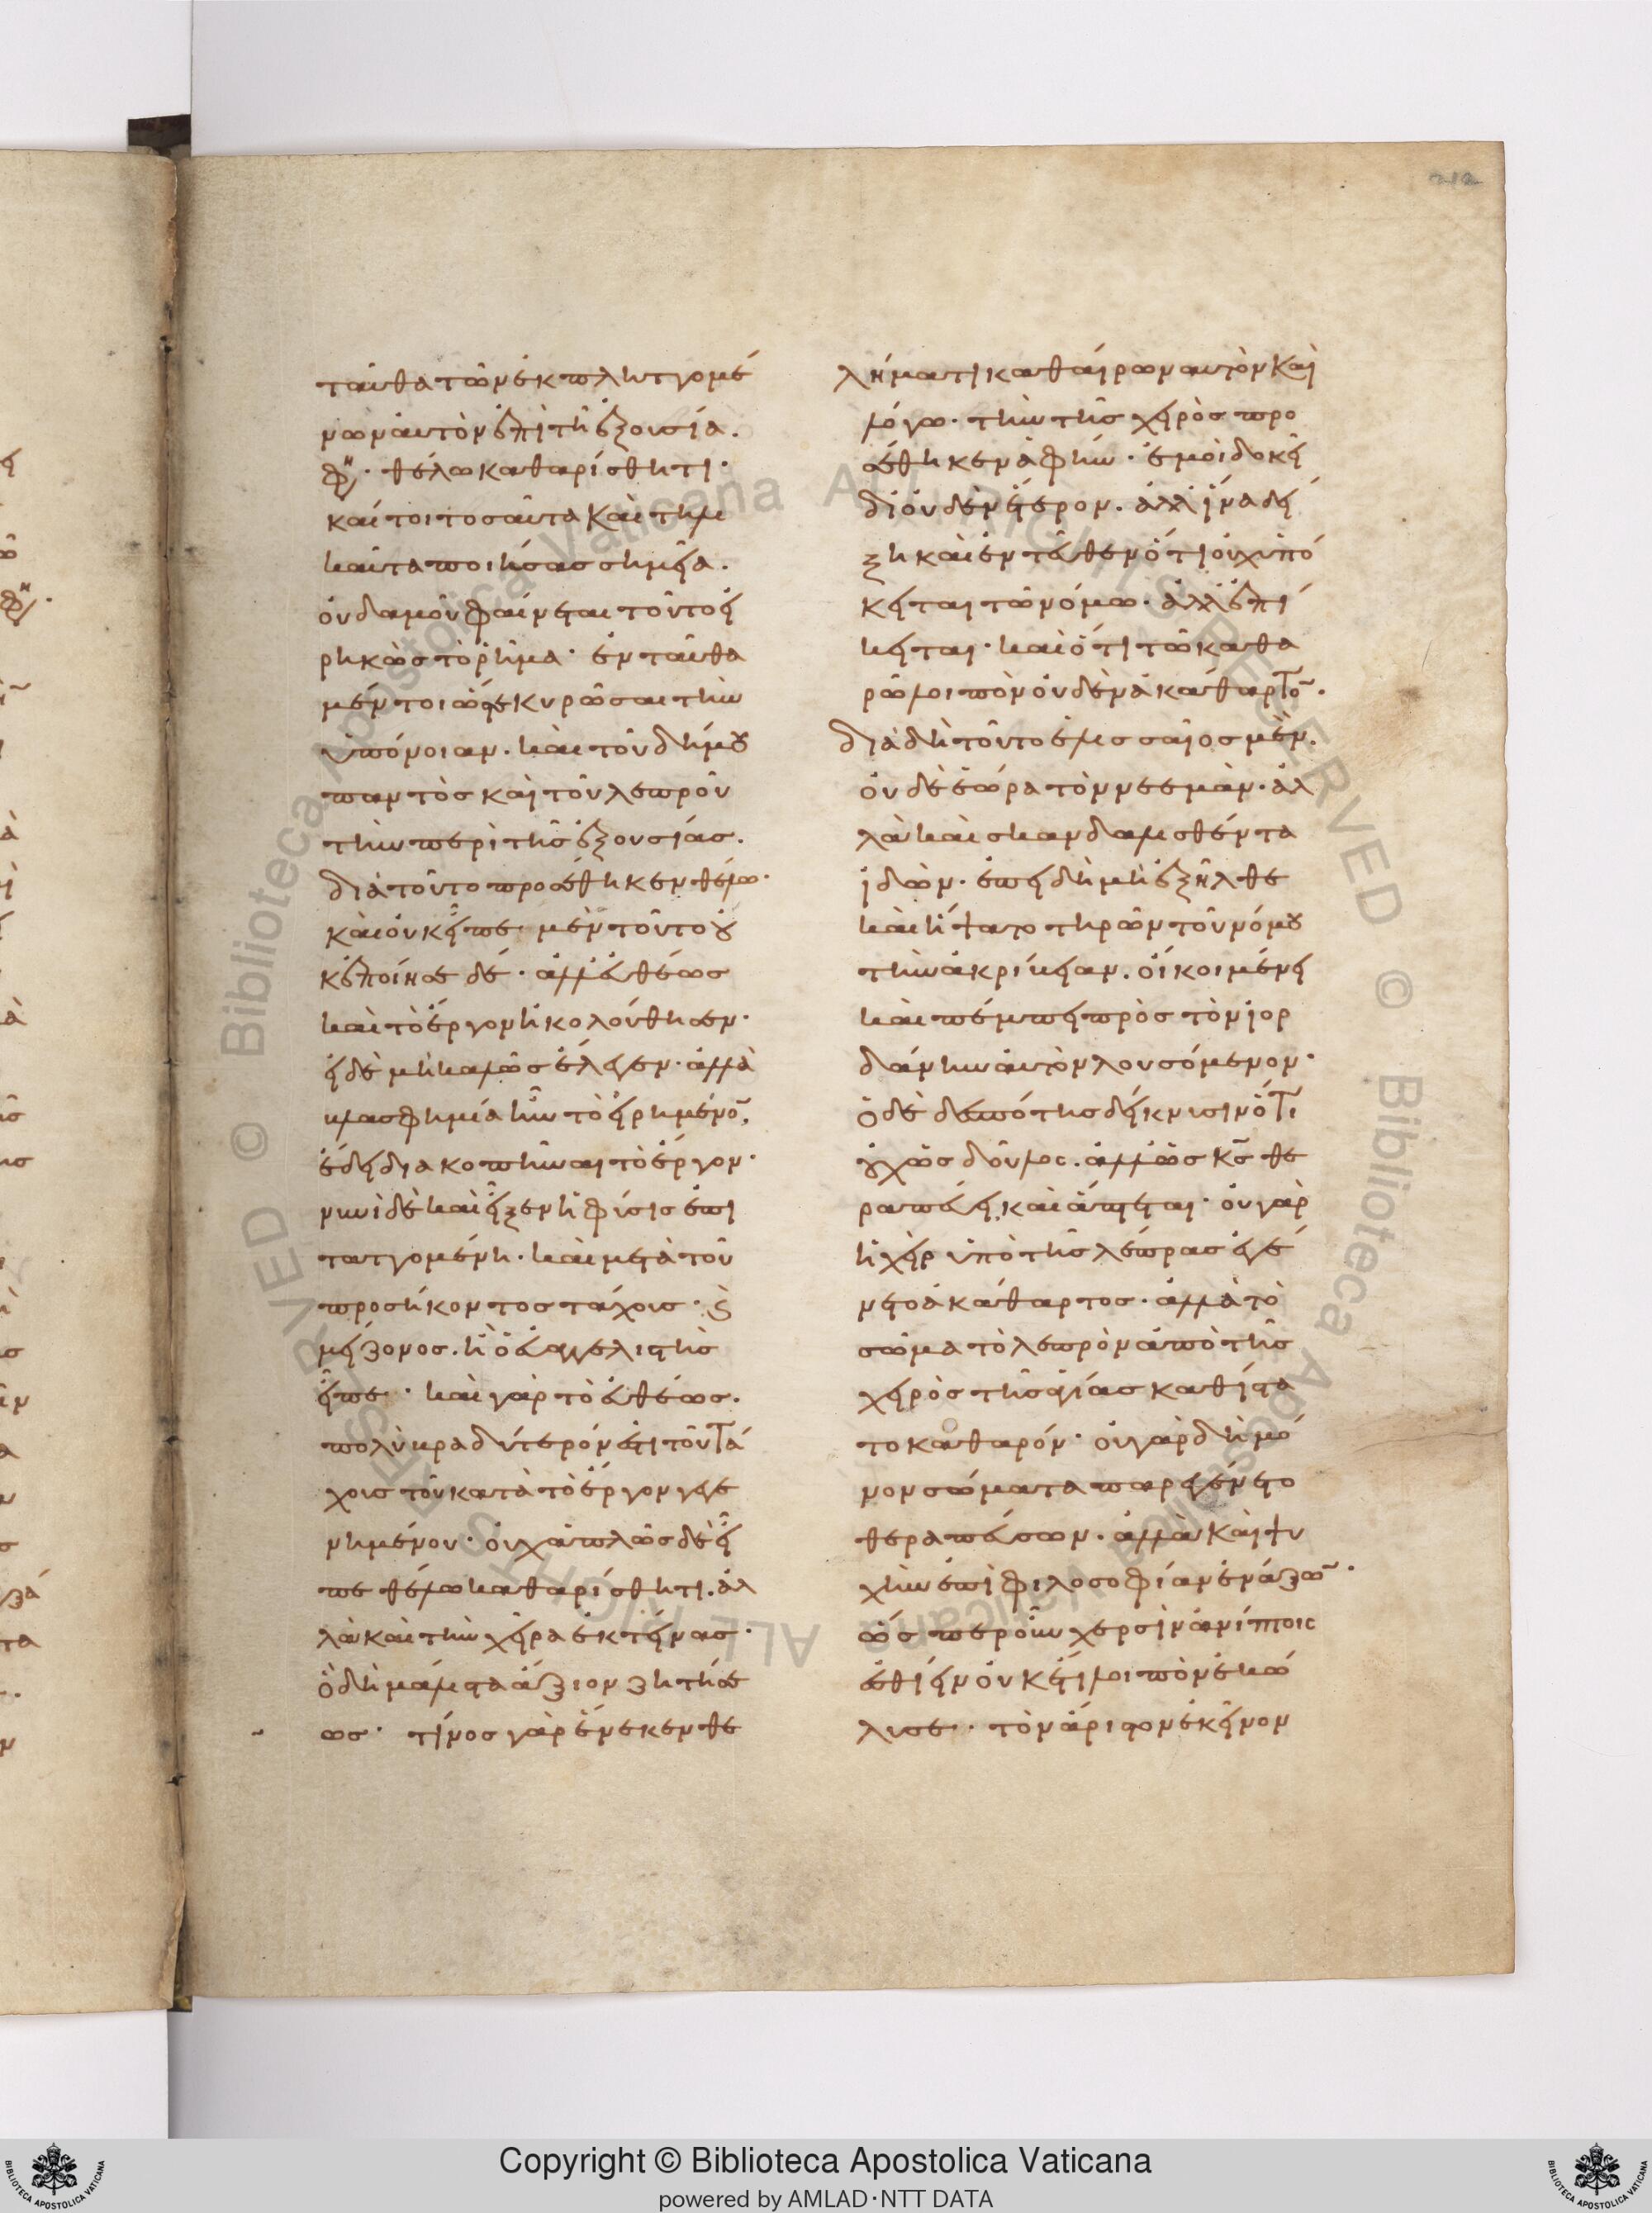 212
ταῦθα τῶν ἐκπληττομέ
νων αὐτὸν ἐπὶ τῆ ἐξουσία.
φη· θέλω καθαρίσθητι·
καίτοι τοσαῦτα καὶ τηλι
καῦτα ποιήσας σημεῖα.
οὐδαμοῦ φαίνεται τοῦτο εἰ
ρηκὼς τὸ ῥῆμα· ἐνταῦθα
μέντοι ὥστε κυρῶσαι τὴν
ὑπόνοιαν. καὶ τοῦ δήμου
παντὸς καὶ τοῦ λεπροῦ
τὴν περὶ τῆς ἐξουσίας.
διὰ τοῦτο προσέθηκεν θέλω·
καὶ οὐκ εἶπε μὲν τοῦτο οὐ
κ ἐποίησε δέ· ἀλλ' εὐθέως
καὶ τὸ ἔργον ἠκολούθησεν·
εἰ δὲ μὴ καλῶς ἔλεγεν· ἀλλὰ
βλασφημία ἦν τὸ εἰρημένον,
ἔδει διακοπῆναι τὸ ἔργον·
νυνὶ δὲ καὶ εἶξεν ἡ φύσις ἐπι
ταττομένη· καὶ μετὰ τοῦ
προσήκοντος τάχους· καὶ
μείζονος. ἢ ὁ εὐαγγελιστὴς
εἶπε· καὶ γὰρ τὸ εὐθέως.
πολὺ βραδύτερόν ἐστι τοῦ τά
χους τοῦ κατὰ τὸ ἔργον γεγε
νημένου· οὐχ ἁπλῶς δὲ εἶ
πε θέλω καθαρίσθητι. ἀλ
λὰ καὶ τὴν χεῖρα ἐκτείνας·
ὃ δὴ μάλιστα ἄξιον ζητήσε
ως· τίνος γὰρ ἕνεκεν θε
λήματι καθαίρων αὐτὸν καὶ
λόγω· τὴν τῆς χειρὸς προ
σέθηκεν ἁφήν· ἐμοὶ δοκεῖ
δι' οὐδὲν ἕτερον. ἀλλ' ἵνα δεί
ξη καὶ ἐντεῦθεν ὅτι οὐχ ὑπό
κειται τῶ νόμω· ἀλλ' ἐπί
κειται· καὶ ὅτι τῶ καθα
ρῶ λοιπὸν οὐδὲν ἀκάθαρτον.
διὰ δὴ τοῦτο ἐλισσαῖος μὲν.
οὐδὲ ἑώρα τὸν νεεμάν· ἀλ
λὰ καὶ σκανδαλισθέντα
ἰδὼν· ἐπειδὴ μὴ ἐξῆλθε
καὶ ἥψατο τηρῶν τοῦ νόμου
τὴν ἀκρίβειαν. οἴκοι μένει
καὶ πέμπει πρὸς τὸν ἰορ
δάνην αὐτὸν λουσόμενον·
ὁ δὲ δεσπότης δείκνυσιν ὅτι
οὐχ ὡς δοῦλος. ἀλλ' ὡς κς θε
ραπεύει, καὶ ἅπτεται· οὐ γὰρ
ἡ χεὶρ ὑπὸ τῆς λέπρας ἐγέ
νετο ἀκάθαρτος· ἀλλὰ τὸ
σῶμα τὸ λεπρὸν ἀπὸ τῆς
χειρὸς τῆς ἁγίας καθίστα
το καθαρόν· οὐ γὰρ δὴ μό
νον σώματα παρεγένετο
θεραπεύσων. ἀλλὰ καὶ ψυ
χὴν ἐπὶ φιλοσοφίαν ἐνάγων.
ὥσπερ οὖν χερσὶν ἀνίπτοις
ἐσθίειν οὐκέτι λοιπὸν ἐκώ
λυσε· τὸν ἄριστον ἐκεῖνον
Copyright © Biblioteca Apostolica Vaticana
powered by AMLAD·NTT DATA